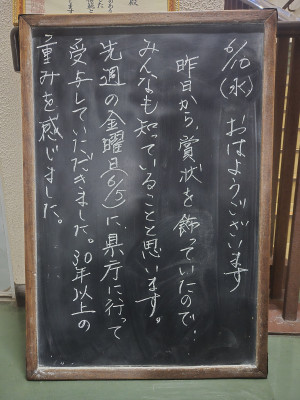 6/10(水) おはようございます
昨日から、賞状を飾っていたので、
みんなも知っていることと思います。
先週の金曜日(6/5)に、県庁に行って
受与していただきました。30年以上の
重みを感じました。
殿